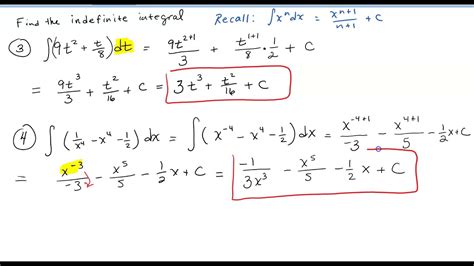 Find the indefinite integral Recall: ∫xⁿdx = xⁿ⁺¹/n+1 + C
③ ∫(9t² + t/8)dt = 9t²⁺¹/3 + t¹⁺¹/8 · 1/2 + C
= 9t³/3 + t²/16 + C = 3t³ + t²/16 + C
④ ∫(1/x⁴ - x⁴ - 1/2)dx = ∫(x⁻⁴ - x⁴ - 1/2)dx = x⁻⁴⁺¹/-3 - x⁴⁺¹/5 - 1/2x + C
= x⁻³/-3 - x⁵/5 - 1/2x + C = -1/3x³ - x⁵/5 - 1/2x + C